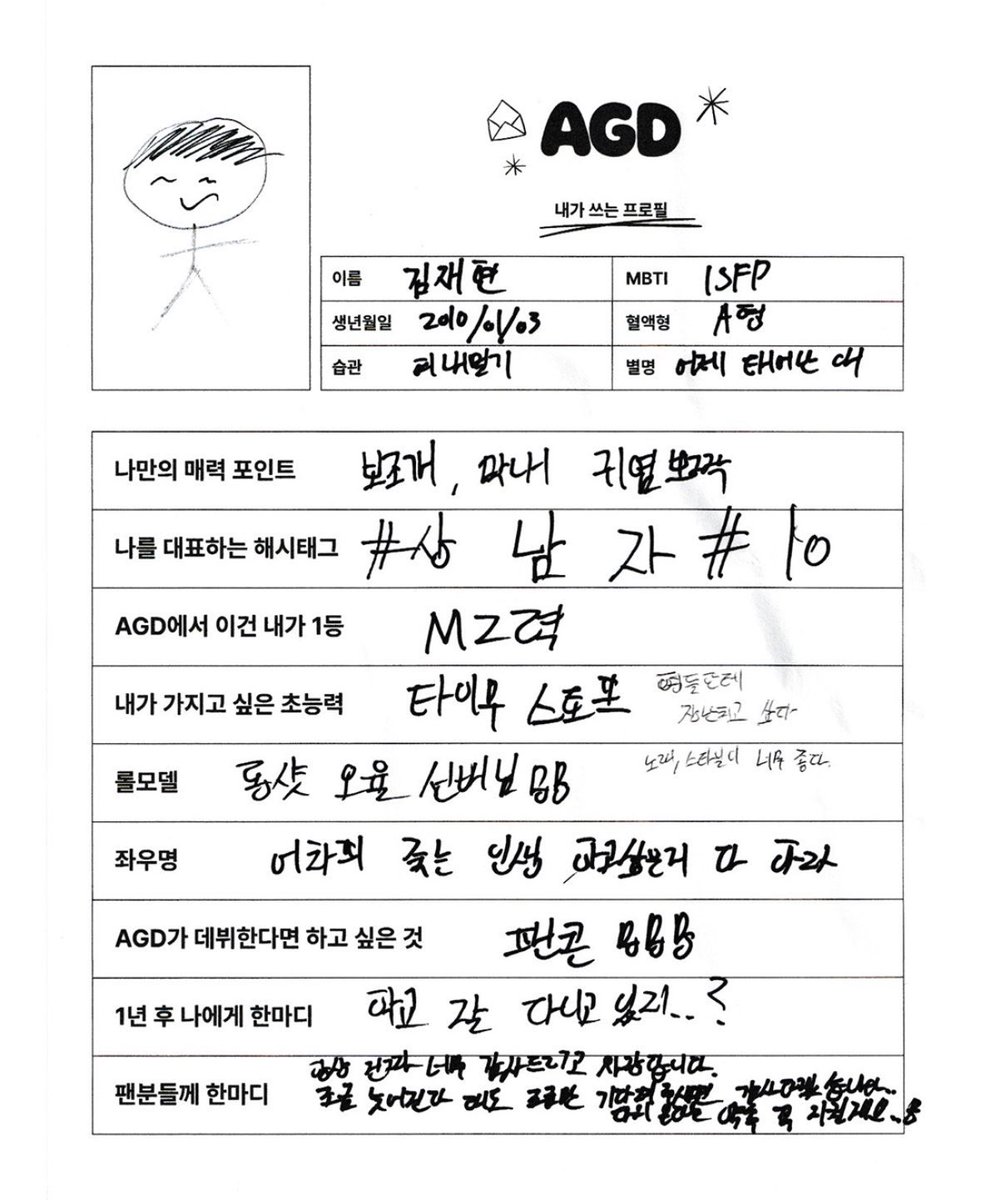 AGD
내가 쓰는 프로필
이름 김재현 MBTI ISFP
생년월일 2010/01/03 혈액형 A형
습관 혀내밀기 별명 어제 태어난 애
나만의 매력 포인트 보조개, 막내 귀염뽀짝
나를 대표하는 해시태그 #상남자 #10
AGD에서 이건 내가 1등 MZ력
내가 가지고 싶은 초능력 타이무 스토프 형들한테
장난치고 싶다
노래, 스타일이 너무 좋다.
롤모델 롱샷 오율 선배님
좌우명 어차피 죽는 인생 하고싶은거 다 하라
AGD가 데뷔한다면 하고 싶은 것 팬콘
1년 후 나에게 한마디 학교 잘 다니고 있지..?
팬분들께 한마디 항상 진짜 너무 감사드리고 사랑합니다.
조금 늦어진다 해도 조금만 기다려주시면 감사하겠습니다..
약속 꼭 지킬게요..